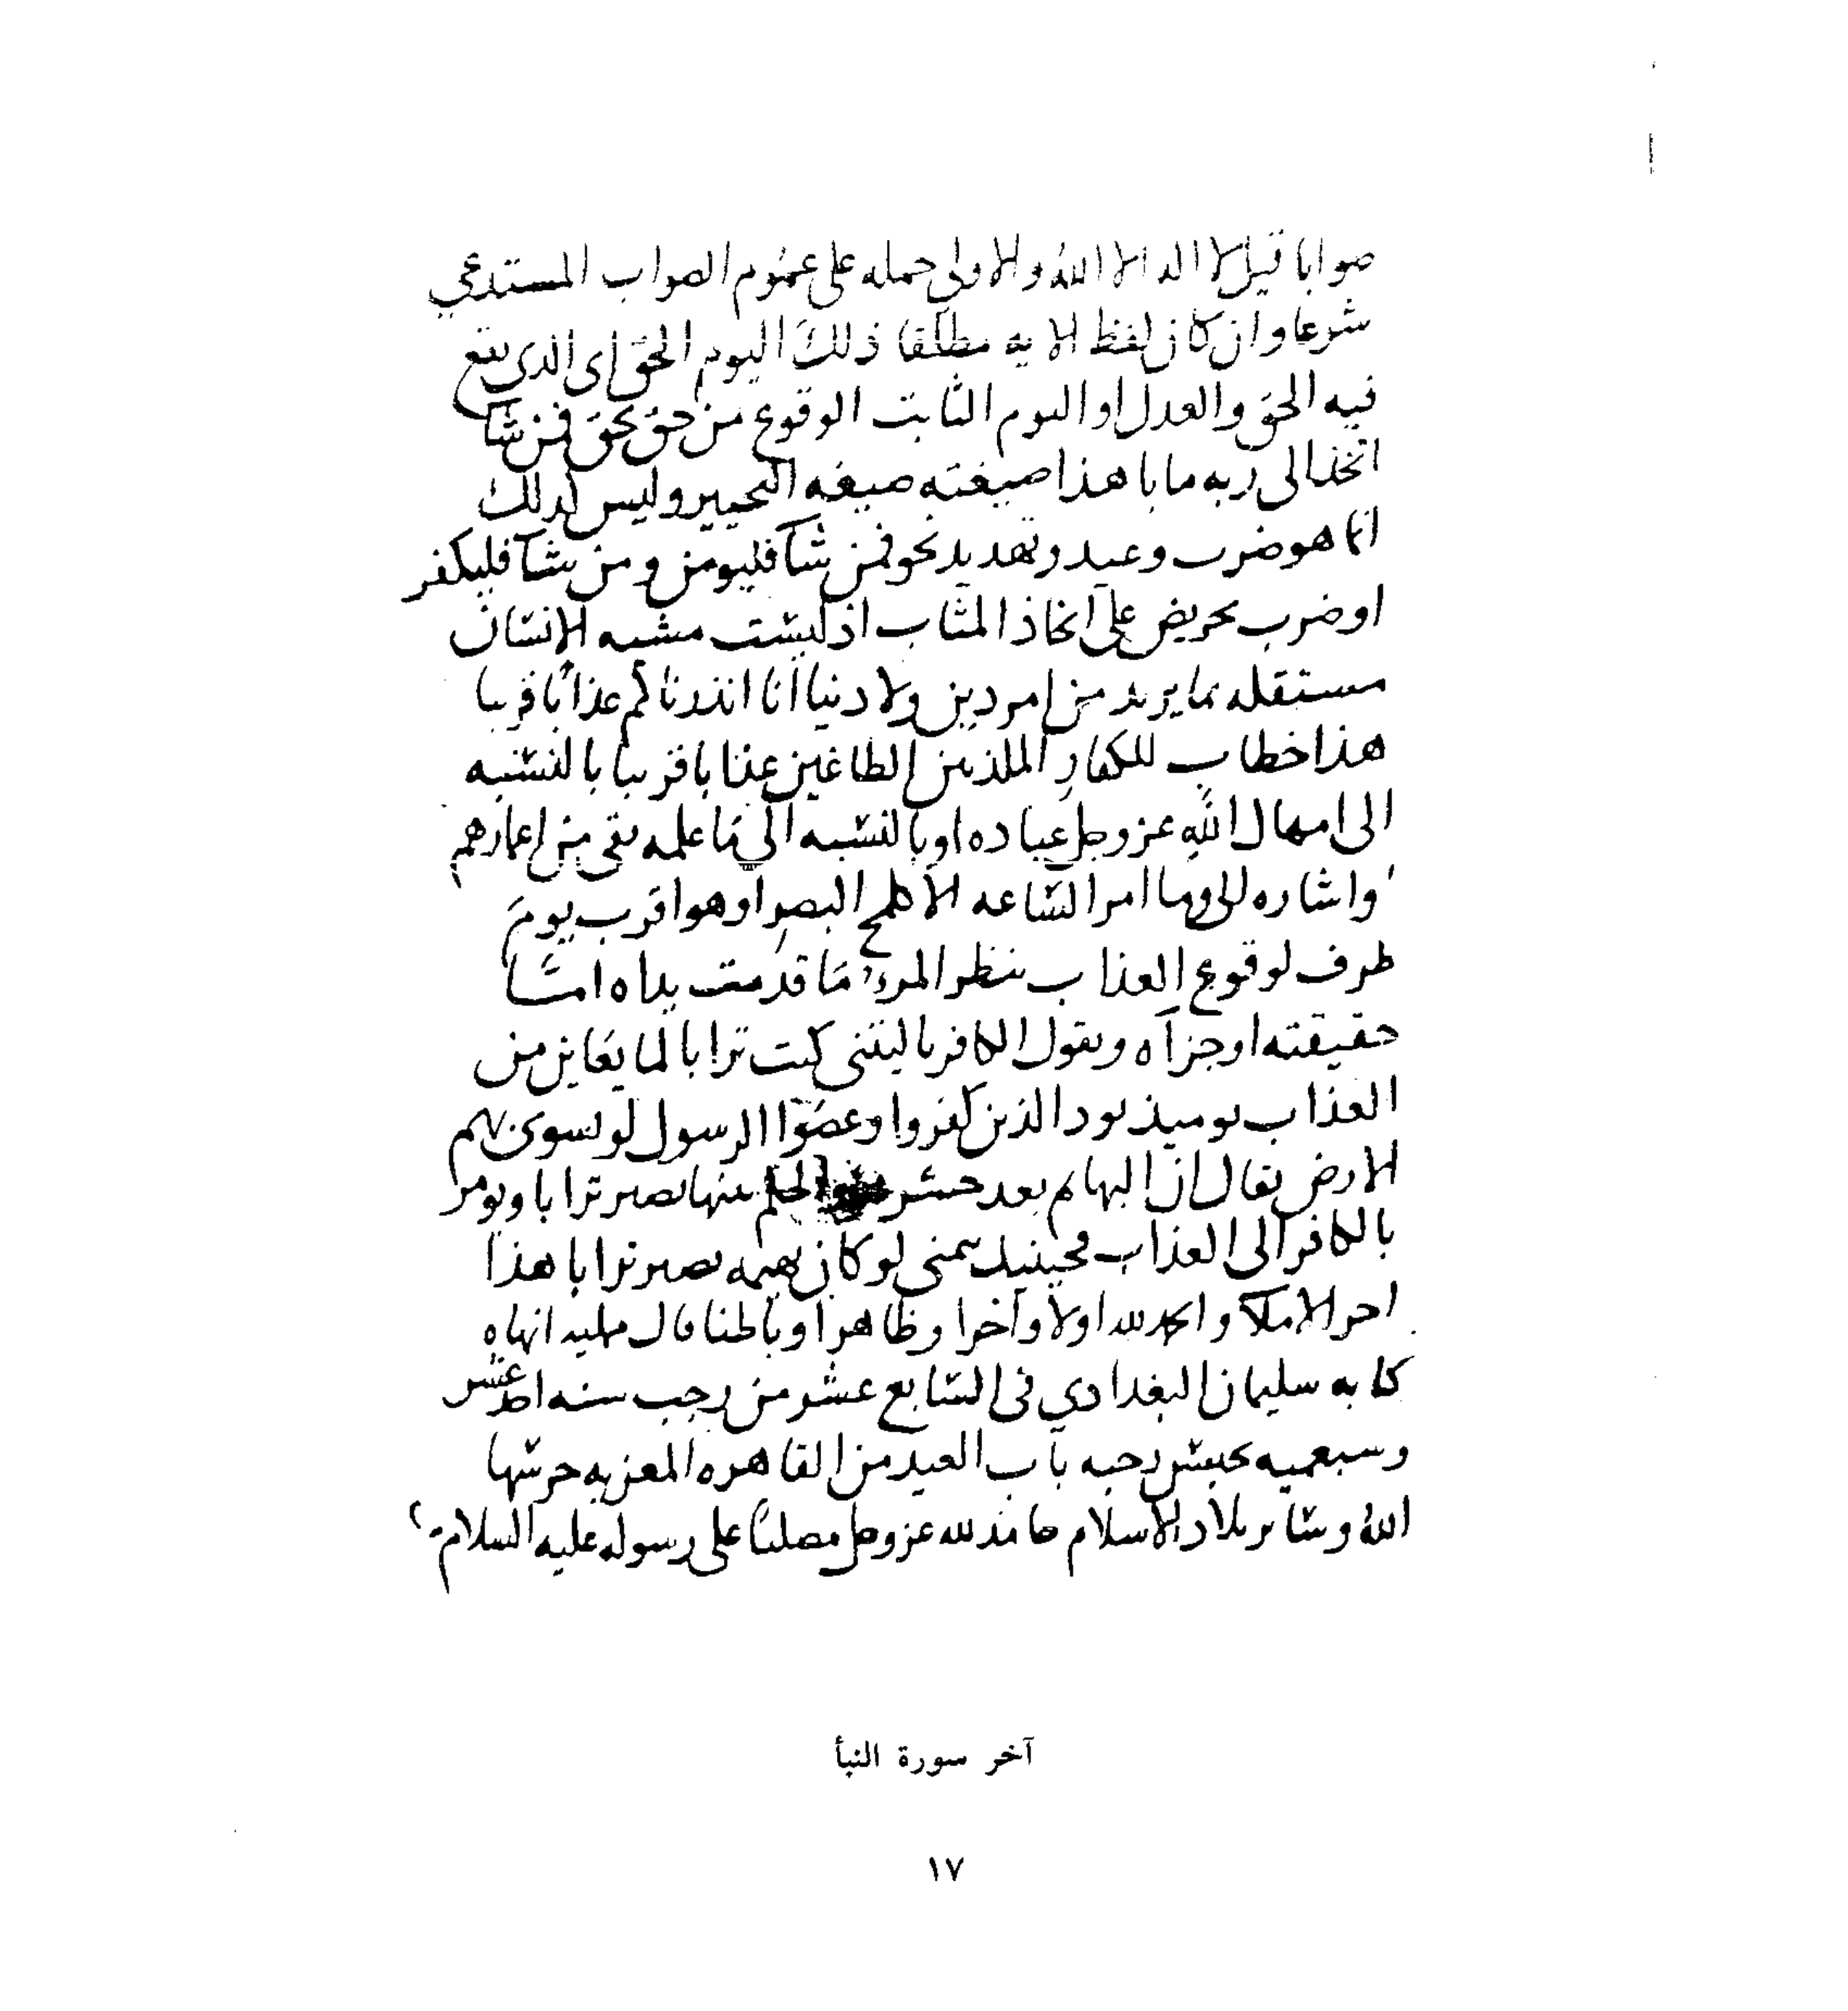 صوابا قيل لا اله الا الله والاولى حمله على عموم الصواب المستدعي
شرعا وان كان لفظ الايه مطلقا ذلك اليوم الحق اى الذى يقع
فيه الحق والعدل او اليوم الثابت الوقوع من حق يحق فمن شآ
اتخذ الى ربه مابا هذا صيغته صيغه التخيير وليس كذلك
انما هو ضرب وعيد وتهديد نحو فمن شآ فليومن ومن شآ فليكفر
او ضرب تحريض على اتخاذ المثاب اذ ليست مشيه الانسان
مستقله بما يريد من امر دين ولا دنيا انا انذرناكم عذابا قريبا
هذا خطاب للكفار الطاغين عذابا قريبا بالنسبه
الى امهال الله عز وجل عباده او بالنسبه الى ما علمه بقى من اعمارهم
واشاره الى وما امر الساعه الا كلمح البصر او هو اقرب يوم
ظرف لوقوع العذاب ينظر المرء ما قدمت يداه اما
حقيقته او جزآه ويقول الكافر يا ليتنى كنت ترابا لما يعاين من
العذاب يوميذ يود الذين كفروا وعصوا الرسول لو تسوى بهم
الارض يقال ان البهايم بعد حشر بينها تصير ترابا ويومر
بالكافر الى العذاب فحينيذ يتمنى لو كان بهيمه تصير ترابا هذا
اخر الاملآ والحمد لله اولا وآخرا وظاهرا وباطنا قال ممليه انهاه
كتابه سليمان البغدادي فى السابع عشر من رجب سنه احد عشر
وسبعميه بحبس رحبه باب العيد من القاهره المعزيه حرسها
الله وسائر بلاد الاسلام حامدا لله عز وجل مصليا على رسوله عليه السلام
آخر سورة النبأ
١٧